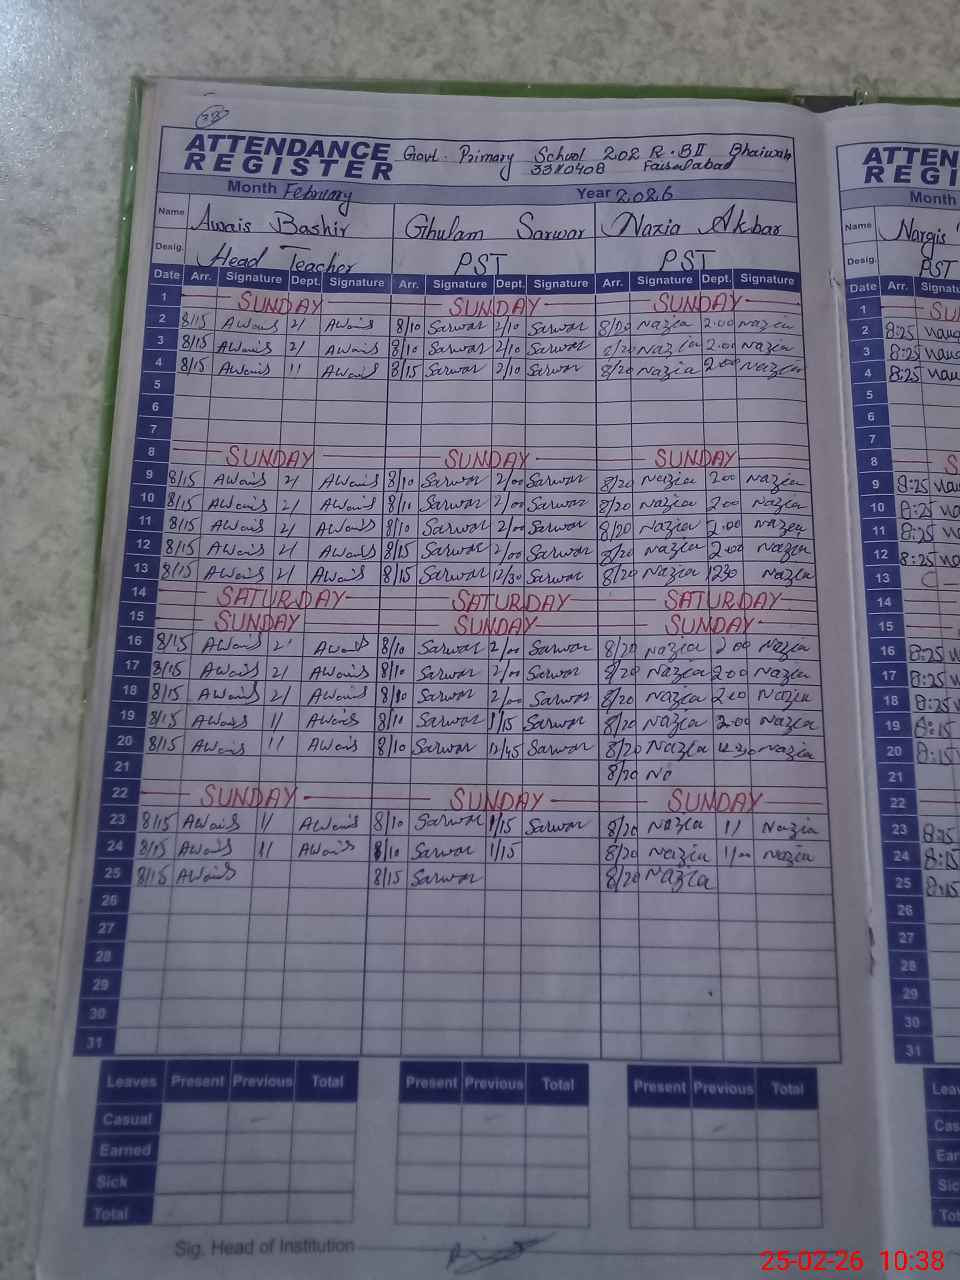 38
ATTENDANCE REGISTER
Govt. Primary School 202 R.B II Bhaiwala
3380408 Faisalabad
Month February Year 2026
Name Awais Bashir Ghulam Sarwar Nazia Akbar
Desig. Head Teacher PST PST
Date Arr. Signature Dept. Signature Arr. Signature Dept. Signature Arr. Signature Dept. Signature
1 SUNDAY SUNDAY SUNDAY
2 8/15 AWais 2/ AWais 8/10 Sarwar 2/10 Sarwar 8/20 Nazia 2.00 Nazia
3 8/15 AWais 2/ AWais 8/10 Sarwar 2/10 Sarwar 8/20 Nazia 2.00 Nazia
4 8/15 AWais 1/ AWais 8/15 Sarwar 2/10 Sarwar 8/20 Nazia 200 Nazia
5
6
7
8 SUNDAY SUNDAY SUNDAY
9 8/15 AWais 2/ AWais 8/10 Sarwar 2/00 Sarwar 8/20 Nazia 200 Nazia
10 8/15 AWais 2/ AWais 8/11 Sarwar 2/00 Sarwar 8/20 Nazia 200 Nazia
11 8/15 AWais 2/ AWais 8/10 Sarwar 2/00 Sarwar 8/20 Nazia 2.00 Nazia
12 8/15 AWais 2/ AWais 8/15 Sarwar 2/00 Sarwar 8/20 Nazia 2.00 Nazia
13 8/15 AWais 2/ AWais 8/15 Sarwar 12/30 Sarwar 8/20 Nazia 1230 Nazia
14 SATURDAY SATURDAY SATURDAY
15 SUNDAY SUNDAY SUNDAY
16 8/15 AWais 2/ AWais 8/10 Sarwar 2/00 Sarwar 8/20 Nazia 200 Nazia
17 8/15 AWais 2/ AWais 8/10 Sarwar 2/00 Sarwar 8/20 Nazia 200 Nazia
18 8/15 AWais 2/ AWais 8/10 Sarwar 2/00 Sarwar 8/20 Nazia 200 Nazia
19 8/15 AWais 1/ AWais 8/10 Sarwar 1/15 Sarwar 8/20 Nazia 2.00 Nazia
20 8/15 AWais 1/ AWais 8/10 Sarwar 12/45 Sarwar 8/20 Nazia 12.30 Nazia
21 8/20 No
22 SUNDAY SUNDAY SUNDAY
23 8/15 AWais 1/ AWais 8/10 Sarwar 1/15 Sarwar 8/20 Nazia 1/ Nazia
24 8/15 AWais 1/ AWais 8/10 Sarwar 1/15 8/20 Nazia 1/00 Nazia
25 8/15 AWais 8/15 Sarwar 8/20 Nazia
26
27
28
29
30
31
Leaves Present Previous Total Present Previous Total Present Previous Total
Casual
Earned
Sick
Total
Sig. Head of Institution
ATTEN
REGI
Month
Name Nargis
Desig. PST
Date Arr. Signatu
1 SU
2 8:25
3 8:25
4 8:25
5
6
7
8 S
9 8:25
10 8:25
11 8:25
12 8:25
13
14
15
16 8:25
17 8:25
18 8:25
19 8:15
20 8:15
21
22
23 8:15
24 8:15
25 8:15
26
27
28
29
30
31
Lea
Cas
Ear
Sic
Tot
25-02-26 10:38